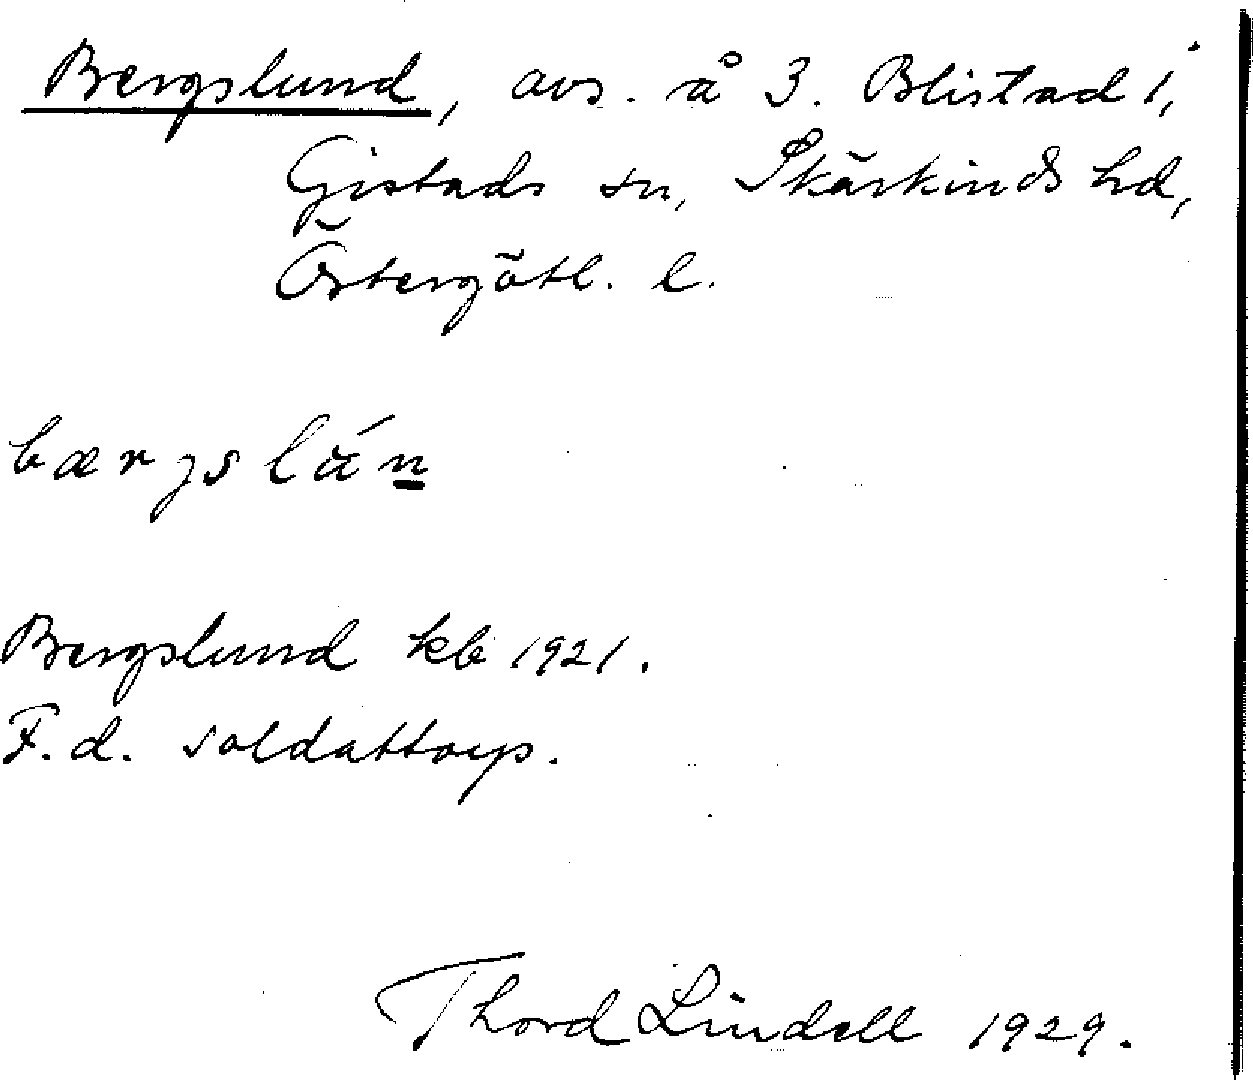 Bergslund, avs. å 3. Blistad 1,
Gistads sn, Skärkinds hd,
Östergötl. l.
bærgslán
Bergslund kb 1921.
F.d. soldattorp.
Thord Lindell 1929.